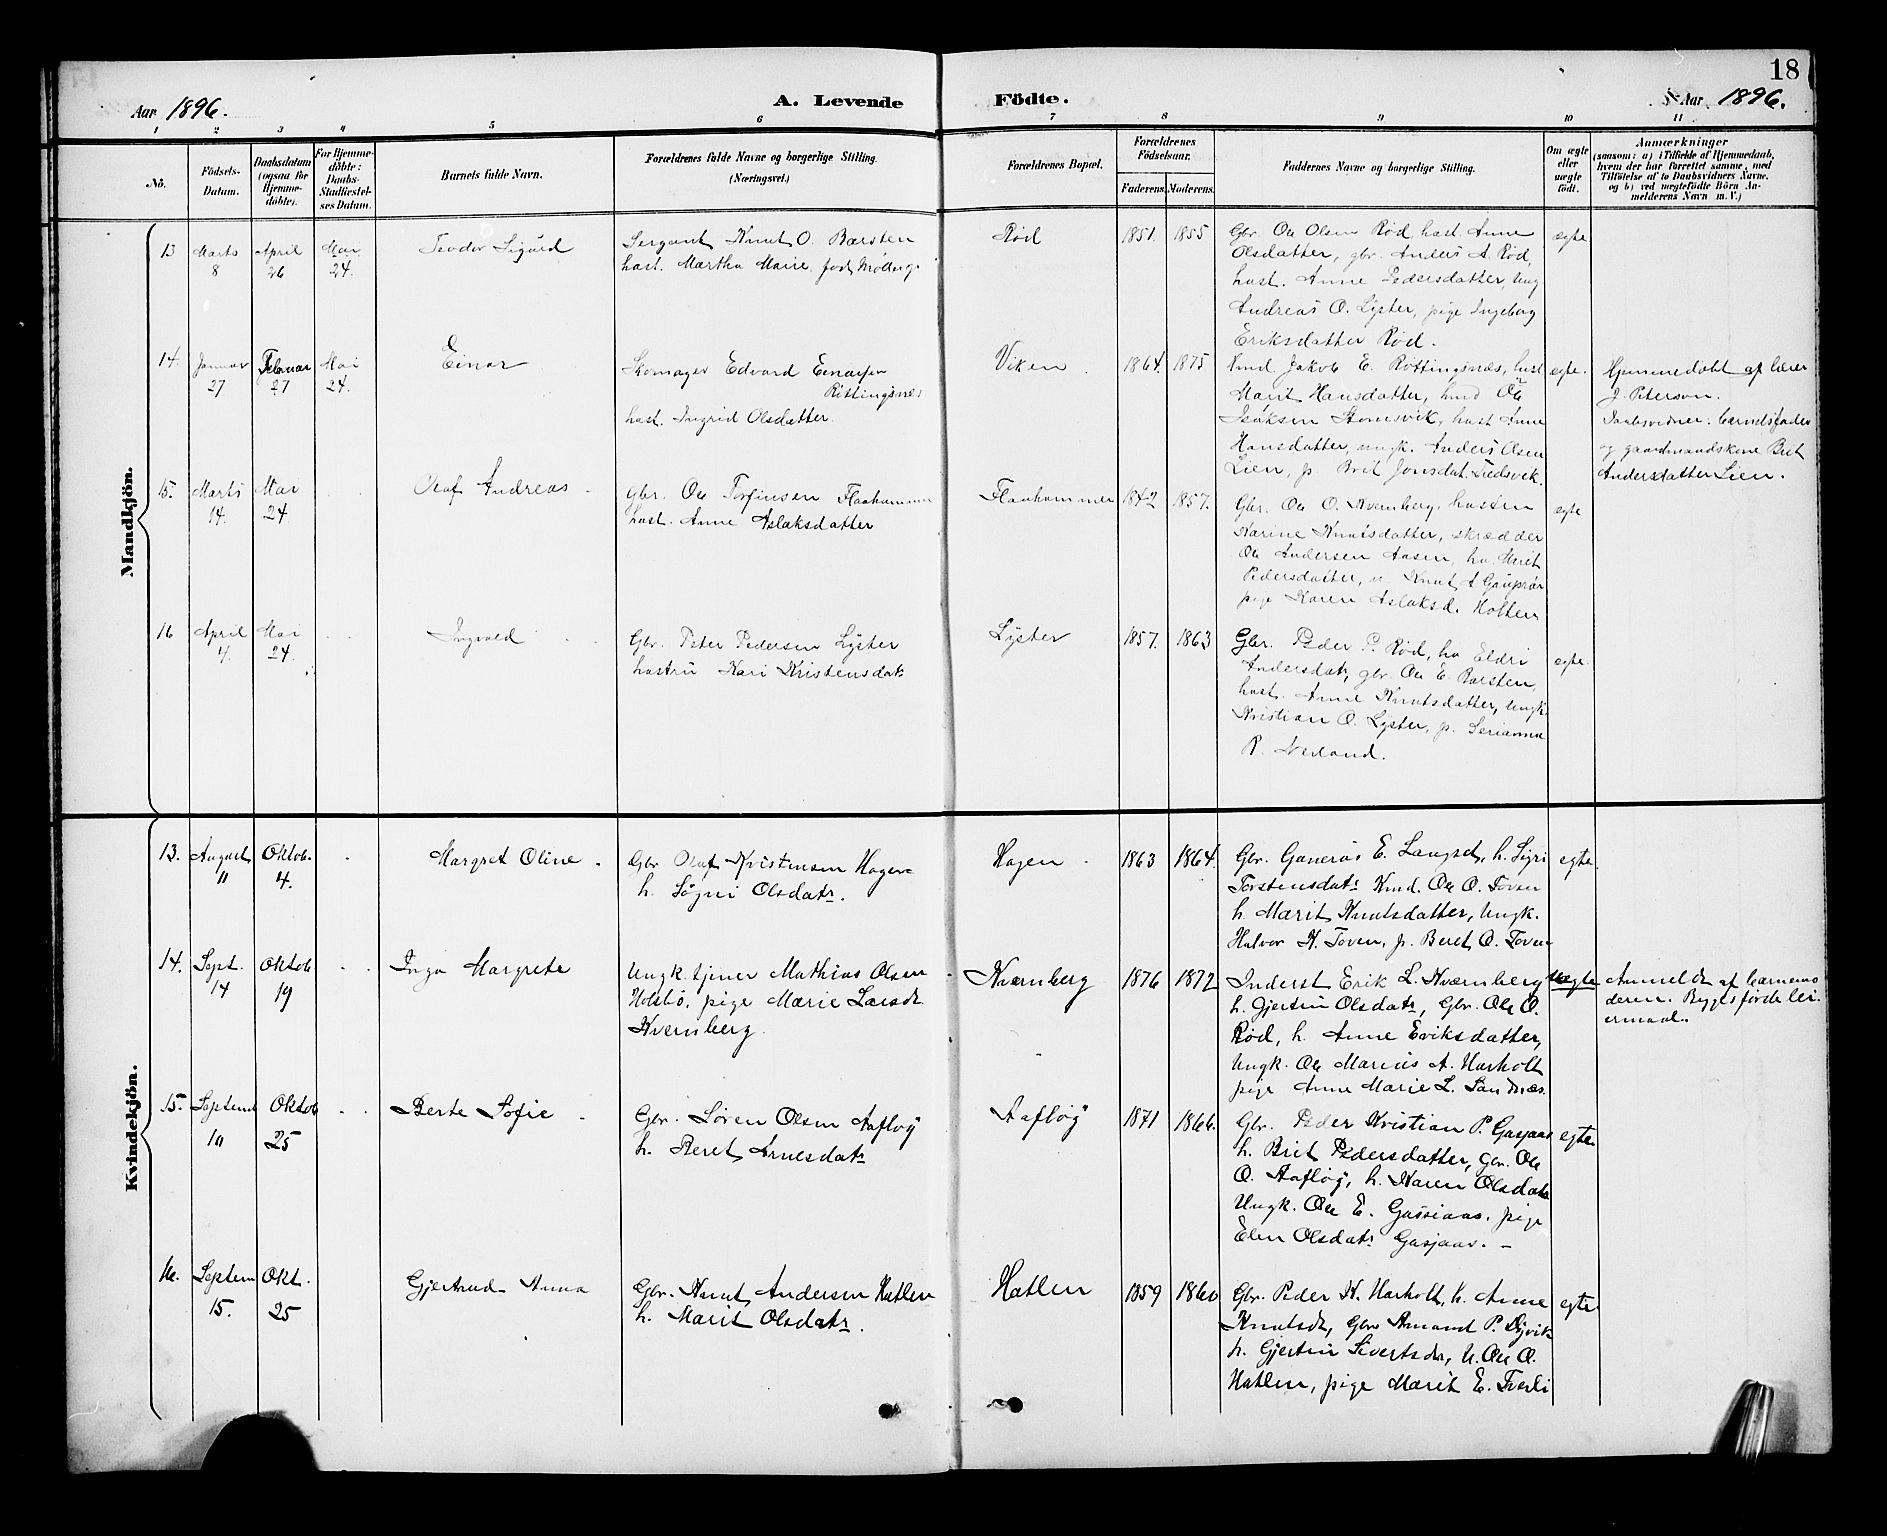 18
Aar 1896.
A. Levende
Fødte.
Aar 1896.
1 2 3 4 5 6 7 8 9 10 11
No.
Fødsels-
Datum.
Daabsdatum
(ogsaa for
Hjemme-
døbte).
For Hjemme-
døbte:
Daabs-
Stadfæstel-
ses Datum.
Barnets fulde Navn.
Forældrenes fulde Navne og borgerlige Stilling.
(Næringsvei.)
Forældrenes Bopæl.
Forældrenes
Fødselsaar.
Faderens. Moderens.
Faddernes Navne og borgerlige Stilling.
Om ægte
eller
uægte
født.
Anmærkninger
(saasom: a) i Tilfælde af Hjemmedaab,
hvem der har forrettet samme, med
Tilføielse af to Daabsvidners Navne.
og b) ved uægtefødte Børn An-
melderens Navn m. V.)
Mandkjön.
13 Marts
8
April
26
Mai
24.
Teodor Sigurd
Sergant Knut O. Barsten
hust. Martha Marie født
Rød
1851. 1855
Gbr. Ole Olsen Rød hust. Anne
Olsdatter, gbr. Anders A. Rød,
hust. Anne Pedersdatter, Ung
Andreas O. Lyster, pige Ingeborg
Eriksdatter Rød.
ægte
14. Januar
27
Februar
27
Mai
24.
Einar
Skomager Edvard Einarsen
Rottingsnæs
hust. Ingrid Olsdatter.
Viken
1864. 1875.
Kmd. Jakob E. Rottingsnæs, hust
Marit Hansdatter, kmd Ole
Isaksen Stomsvik, hust Anne
Hansdatter, ungk. Anders Olsen
Lien, p. Brit Jonsdat. Tredsvik.
ægte.
Hjemmedøbt af lærer
J. Peterson.
Daabsvidner: barnets fader
og gaardmandskone Brit
Andersdatter Lien.
15. Marts
14.
Mai
24.
Olaf Andreas
Gbr. Ole Torfinsen Flaahammer
hust. Anne Aslaksdatter
Flaahammer
1842 1857.
Gbr. Ole O. Kvernberg, hustru
Karine Knutsdatter, skrædder
Ole Andersen Aasen, hu Marit
Pedersdatter, u. Knut A
pige Karen Aslaksd. Holten
ægte
16 April
4.
Mai
24.
Ingvald
Gbr. Peter Pedersen Lyster
hustru Kari Kristensdatr
Lyster
1857. 1863
Gbr. Peder P. Rød, hu Eldri
Andersdatr, gbr. Ole E. Barsten,
hust. Anne Knutsdatter, Ungk.
Kristian O. Lyster, p. Serianna
P. Nerland.
ægte.
Kvindekjön.
13. August
11
Oktob.
4.
Margret Oline
Gbr Olaf Kristensen Hagen
h. Søgni Olsdatr.
Hagen
1863 1864.
Gbr. Ganerius E. Langset, h. Sigri
Torstensdatr Kmd. Ole O. Toven
h. Marit Knutsdatter, Ungk.
Halvor K. Toven, p. Beret O. Toven
egte.
14. Sept.
14
Oktob
19
Inga Margrete
Ungk. tjener Mathias Olsen
Holsbø, pige Marie Larsdt
Kvernberg.
Kvernberg
1876 1872
Inderst Erik L. Kvernberg
h. Gjertru Olsdatr, Gbr. Ole O.
Rød, h. Anne Eriksdatter,
Ungk. Ole Marius A. Harholt
pige Anne Marie L. Sandnæs.
Uegte
Anmeldt af barnemo
deren. Begges første lei-
ermaal.
15. Septemb
10
Oktob
25
Berte Sofie
Gbr. Søren Olsen Aafløy
h. Beret Arnesdatr
Aafløy
1871 1866.
Gbr. Peder Kristian P. Gasjaas
h. Brit Pedersdatter, Gbr. Ole
O. Aafløy, h. Karen Olsdatr
Ungk. Ole E. Gassiaas, pige
Elen Olsdatr Gasjaas.
egte.
16. Septem
15.
Okt.
25
Gjertrud Anna
Gbr. Knut Andersen Hatlen
h. Marit Olsdatr.
Hatlen
1859 1860
Gbr. Peder K. Harholt, h. Anne
Knutsdt, Gbr Amand P. Djvik
h. Gjertru Sivertsdr, U. Ole O.
Hatlen, pige Marit E. Tverli
egte